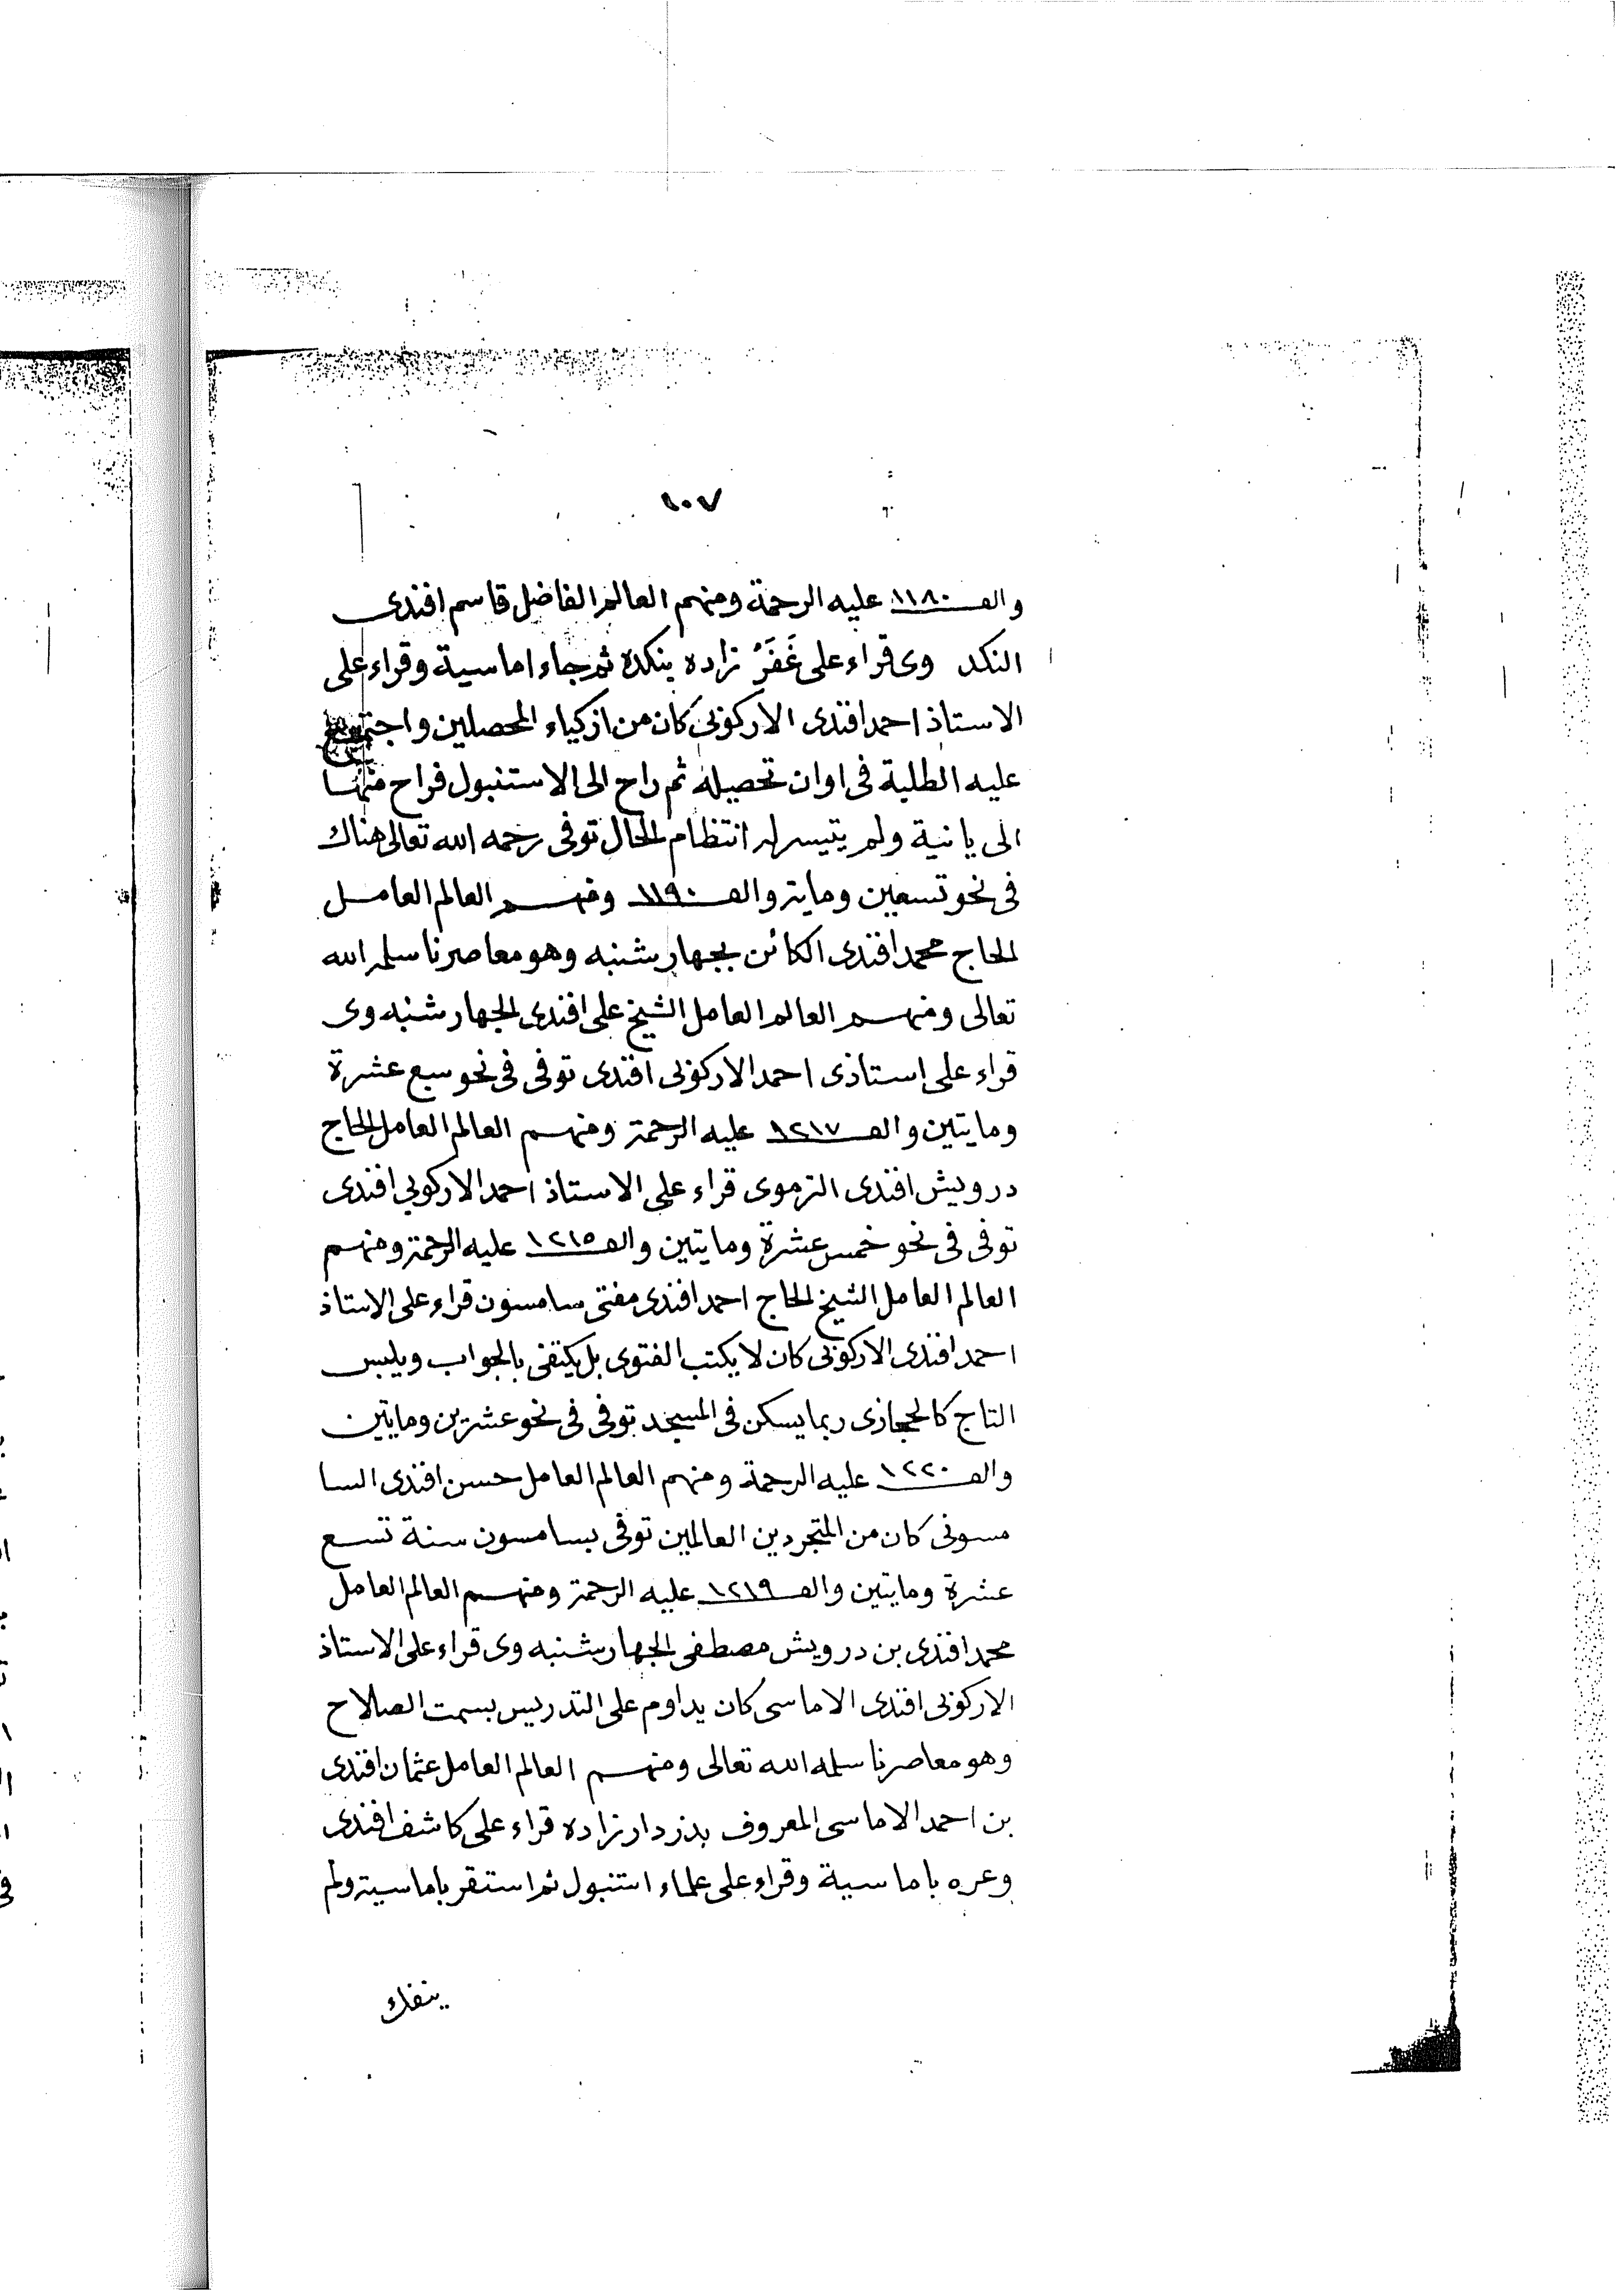 ١٠٧
والف ١١٨٠ عليه الرحمة ومنهم العالم الفاضل قاسم افندى
النكد وى قراء على غَفَرُ زاده بنكده ثم جاء اماسية وقراء على
الاستاذ احمد افندى الاركوبى كان من ازكياء المحصلين واجتمع
عليه الطلبة فى اوان تحصيله ثم راح الى الاستنبول فراح منها
الى يانية ولم يتيسر له انتظام الحال توفى رحمه الله تعالى هناك
فى نحو تسعين ومايتر والف ١١٩٠ ومنهم العالم العامل
الحاج محمد افندى الكائن بجهار شنبه وهو معاصرنا سلمه الله
تعالى ومنهم العالم العامل الشيخ على افندى الجهار شنبه وى
قراء على استاذى احمد الاركوبى افندى توفى فى نحو سبع عشرة
ومايتين والف ١٢١٧ عليه الرحمة ومنهم العالم العامل الحاج
درويش افندى الترموى قراء على الاستاذ احمد الاركوبي افندى
توفى فى نحو خمس عشرة ومايتين والف ١٢١٥ عليه الرحمة ومنهم
العالم العامل الشيخ الحاج احمد افندى مفتى سامسون قراء على الاستاذ
احمد افندى الاركوبى كان لا يكتب الفتوى بل يكتفى بالجواب ويلبس
التاج كالحجازى ربما يسكن فى المسجد توفى فى نحو عشرين ومايتين
والف ١٢٢٠ عليه الرحمة ومنهم العالم العامل حسن افندى السا
مسونى كان من المتجردين العالمين توفى بسامسون سنة تسع
عشرة ومايتين والف ١٢١٩ عليه الرحمة ومنهم العالم العامل
محمد افندى بن درويش مصطفى الجهار شنبه وى قراء على الاستاذ
الاركوبى افندى الاماسى كان يداوم على التدريس بسمت الصلاح
وهو معاصرنا سلمه الله تعالى ومنهم العالم العامل عثمان افندى
بن احمد الاماسى المعروف بدزدار زاده قراء على كاشف افندى
وعره باماسية وقراء على علماء استنبول ثم استقر باماسية ولم
ينفك